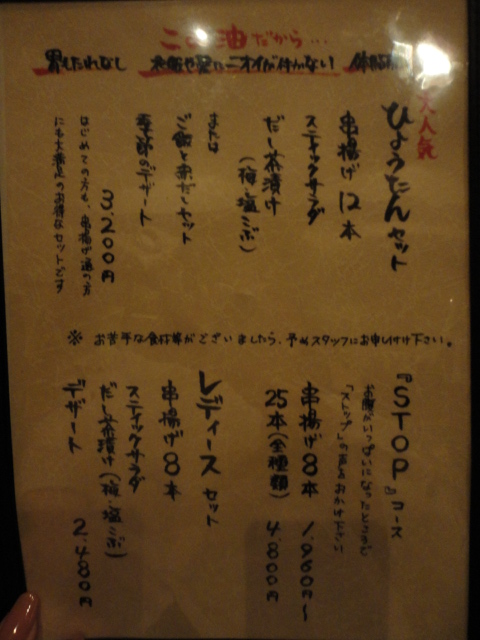 この油だから…
胃もたれなし
衣服や髪にニオイが付かない!
大人気
ひょうたんセット
串揚げ12本
スティックサラダ
だし茶漬け
(梅・塩こぶ)
または
ご飯と赤だしセット
季節のデザート
3,200円
はじめての方も、串揚げ通の方
にも大満足のお得なセットです
※ お苦手な食材等がございましたら、予めスタッフにお申し付け下さい。
『STOP』コース
お腹がいっぱいになったところで
「ストップ」の声をおかけ下さい
串揚げ8本 1,960円〜
25本(全種類) 4,800円
レディースセット
串揚げ8本
スティックサラダ
だし茶漬け(梅・塩こぶ)
デザート
2,480円